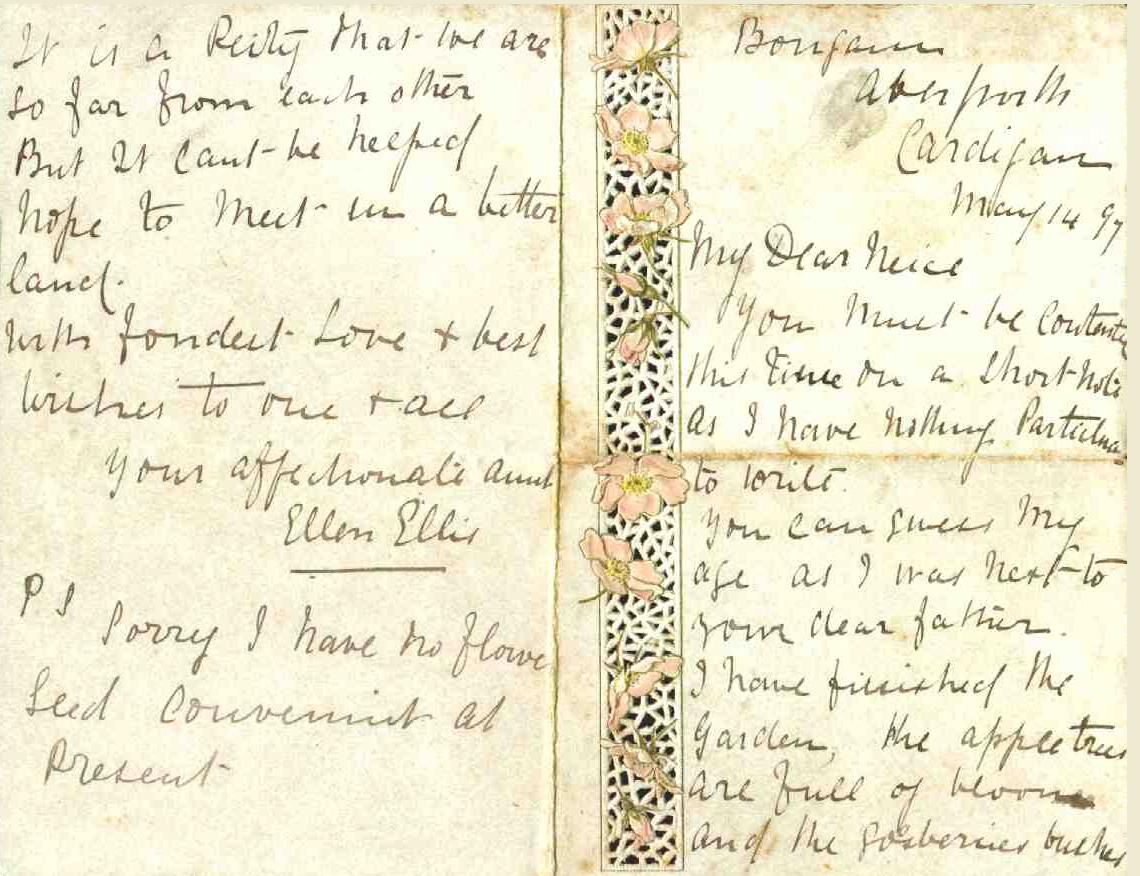 Aberporth
Cardigan
May 14 97
My Dear Neice
You Must be Contente
this Time on a Short Note
as I have Nothing Partcular
to write.
You can guess My
age as I was Next to
your dear father.
I have finished the
Garden, the apple trees
are full of bloom
and the gosberries bushes
It is a Peity that we are
so far from each other
But It Cant be helped
hope to Meet in a better
land.
With fondest Love + best
Wishes to one + all
Your affectionate aunt
Ellen Ellis
P S
Sorry I have no flowe
Seed Convenint at
Present